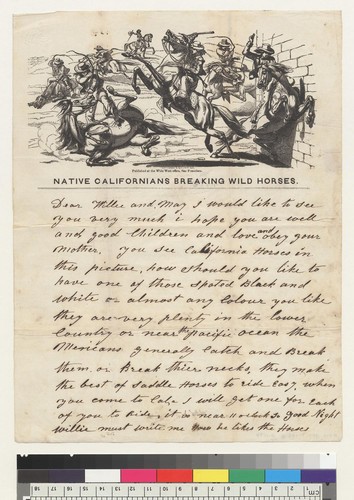 Published at the Wide West office, San Francisco.
NATIVE CALIFORNIANS BREAKING WILD HORSES.
Dear Willie and May I would like to see
you very much i hope you are well
and good Children and love and obey your
Mother. you see California Horses in
this picture, how should you like to
have one of those Spoted Black and
white or almost any Colour you like
they are very plenty in the Lower
Country or near the pacific ocean the
Mexicans generally Catch and Break
them or Break thier necks, they make
the best of Saddle Horses to ride Easy, when
you come to Cala I will get one for each
of you to Ride, it is near 11 oclock so good Night
willie must write me how he likes the Horses
cm 18 17 16 15 14 13 12 11 10 9 8 7 6 5 4 3 2 1